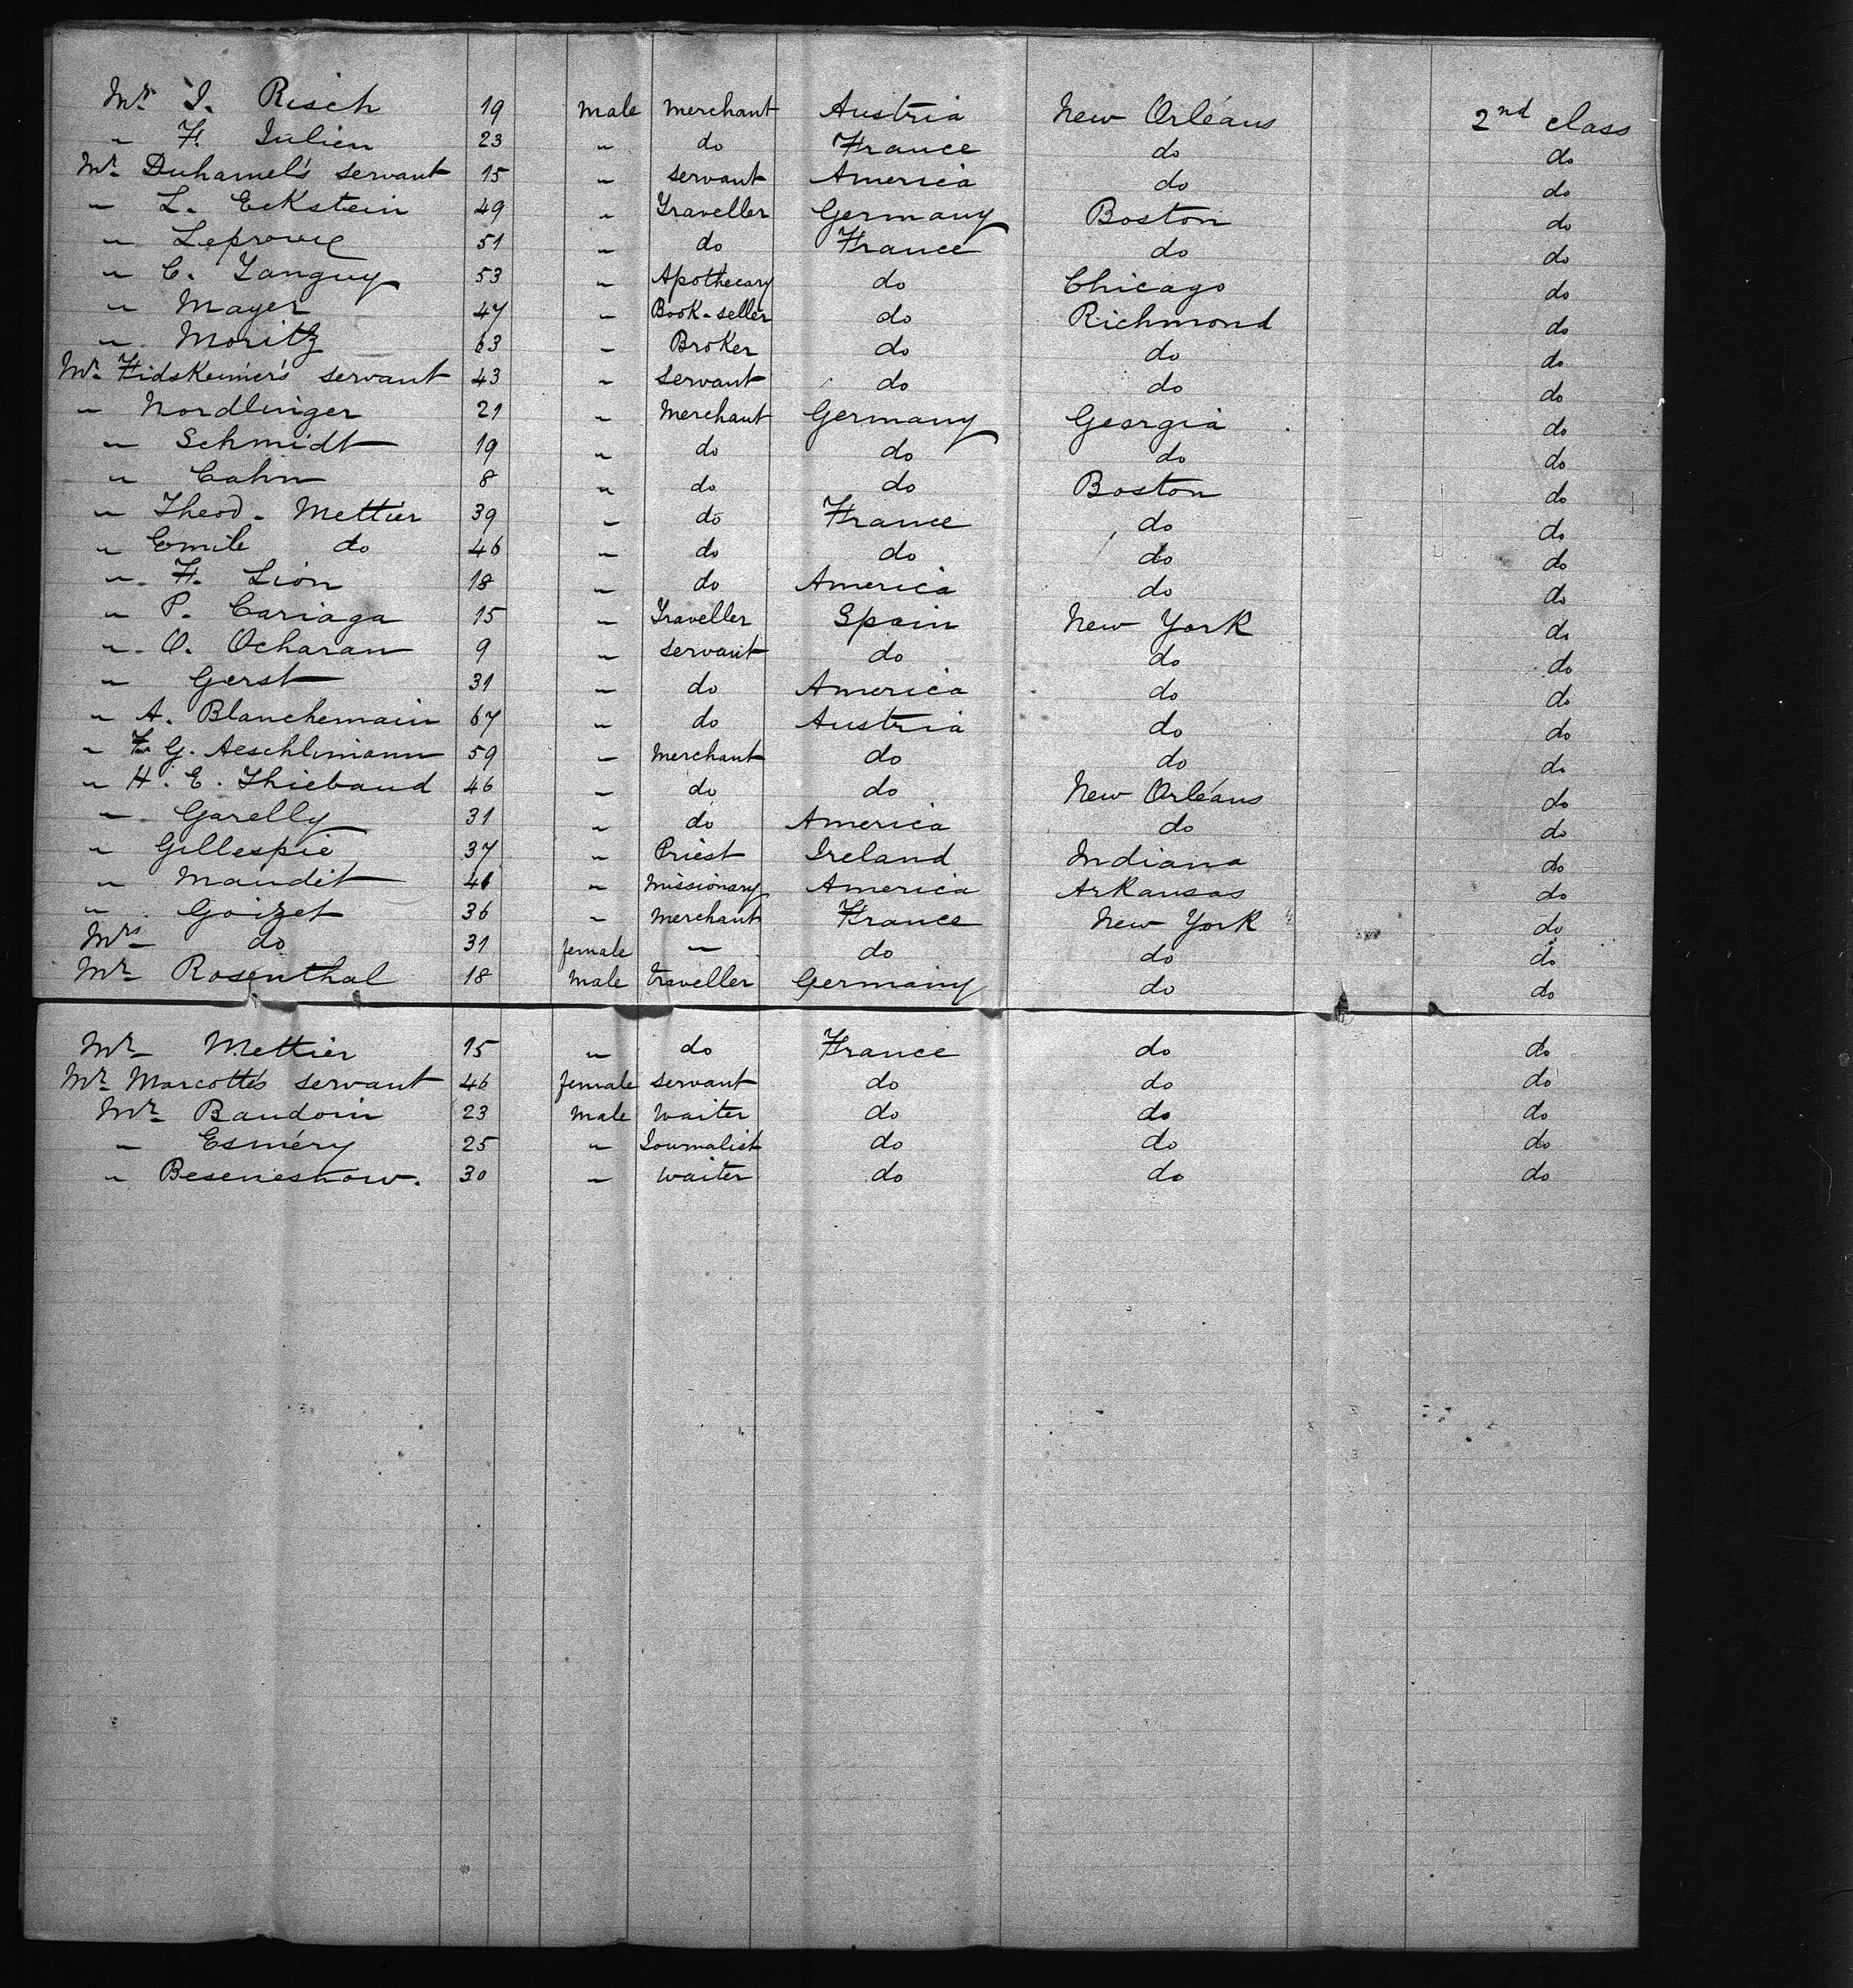 Mr I. Risch 19 male merchant Austria New Orléans 2nd class
" F. Julien 23 " do France do do
Mr Duhamel's servant 15 " servant America do do
" L. Eckstein 49 " Traveller Germany Boston do
" 51 " do France do do
" C. Tanguy 53 " Apothecary do Chicago do
" Mayer 47 " Book-seller do Richmond do
" Moritz 63 " Broker do do do
Mr servant 43 " servant do do do
" Nordlinger 21 " merchant Germany Georgia do
" Schmidt 19 " do do do do
" Cahn 8 " do do Boston do
" Theod. Mettier 39 " do France do do
" Emile do 46 " do do do do
" F. Lion 18 " do America do do
" P. Cariaga 15 " Traveller Spain New York do
" O. Ocharan 9 " servant do do do
" Gerst 31 " do America do do
" A. Blanchemain 67 " do Austria do do
" F. G. Aeschlimann 59 " merchant do do do
" H. E. Thiebaud 46 " do do New Orléans do
" Garelly 31 " do America do do
" Gillespie 37 " Priest Ireland Indiana do
" Maudit " missionary America Arkansas do
" Goizet 36 " merchant France New York do
Mrs do 31 female " do do do
Mr Rosenthal 18 male traveller Germany do do
Mr Mettier 15 " do France do do
Mr Marcotte's servant 46 female servant do do do
Mr Baudoin 23 male waiter do do do
" Esméry 25 " Journalist do do do
" 30 " waiter do do do